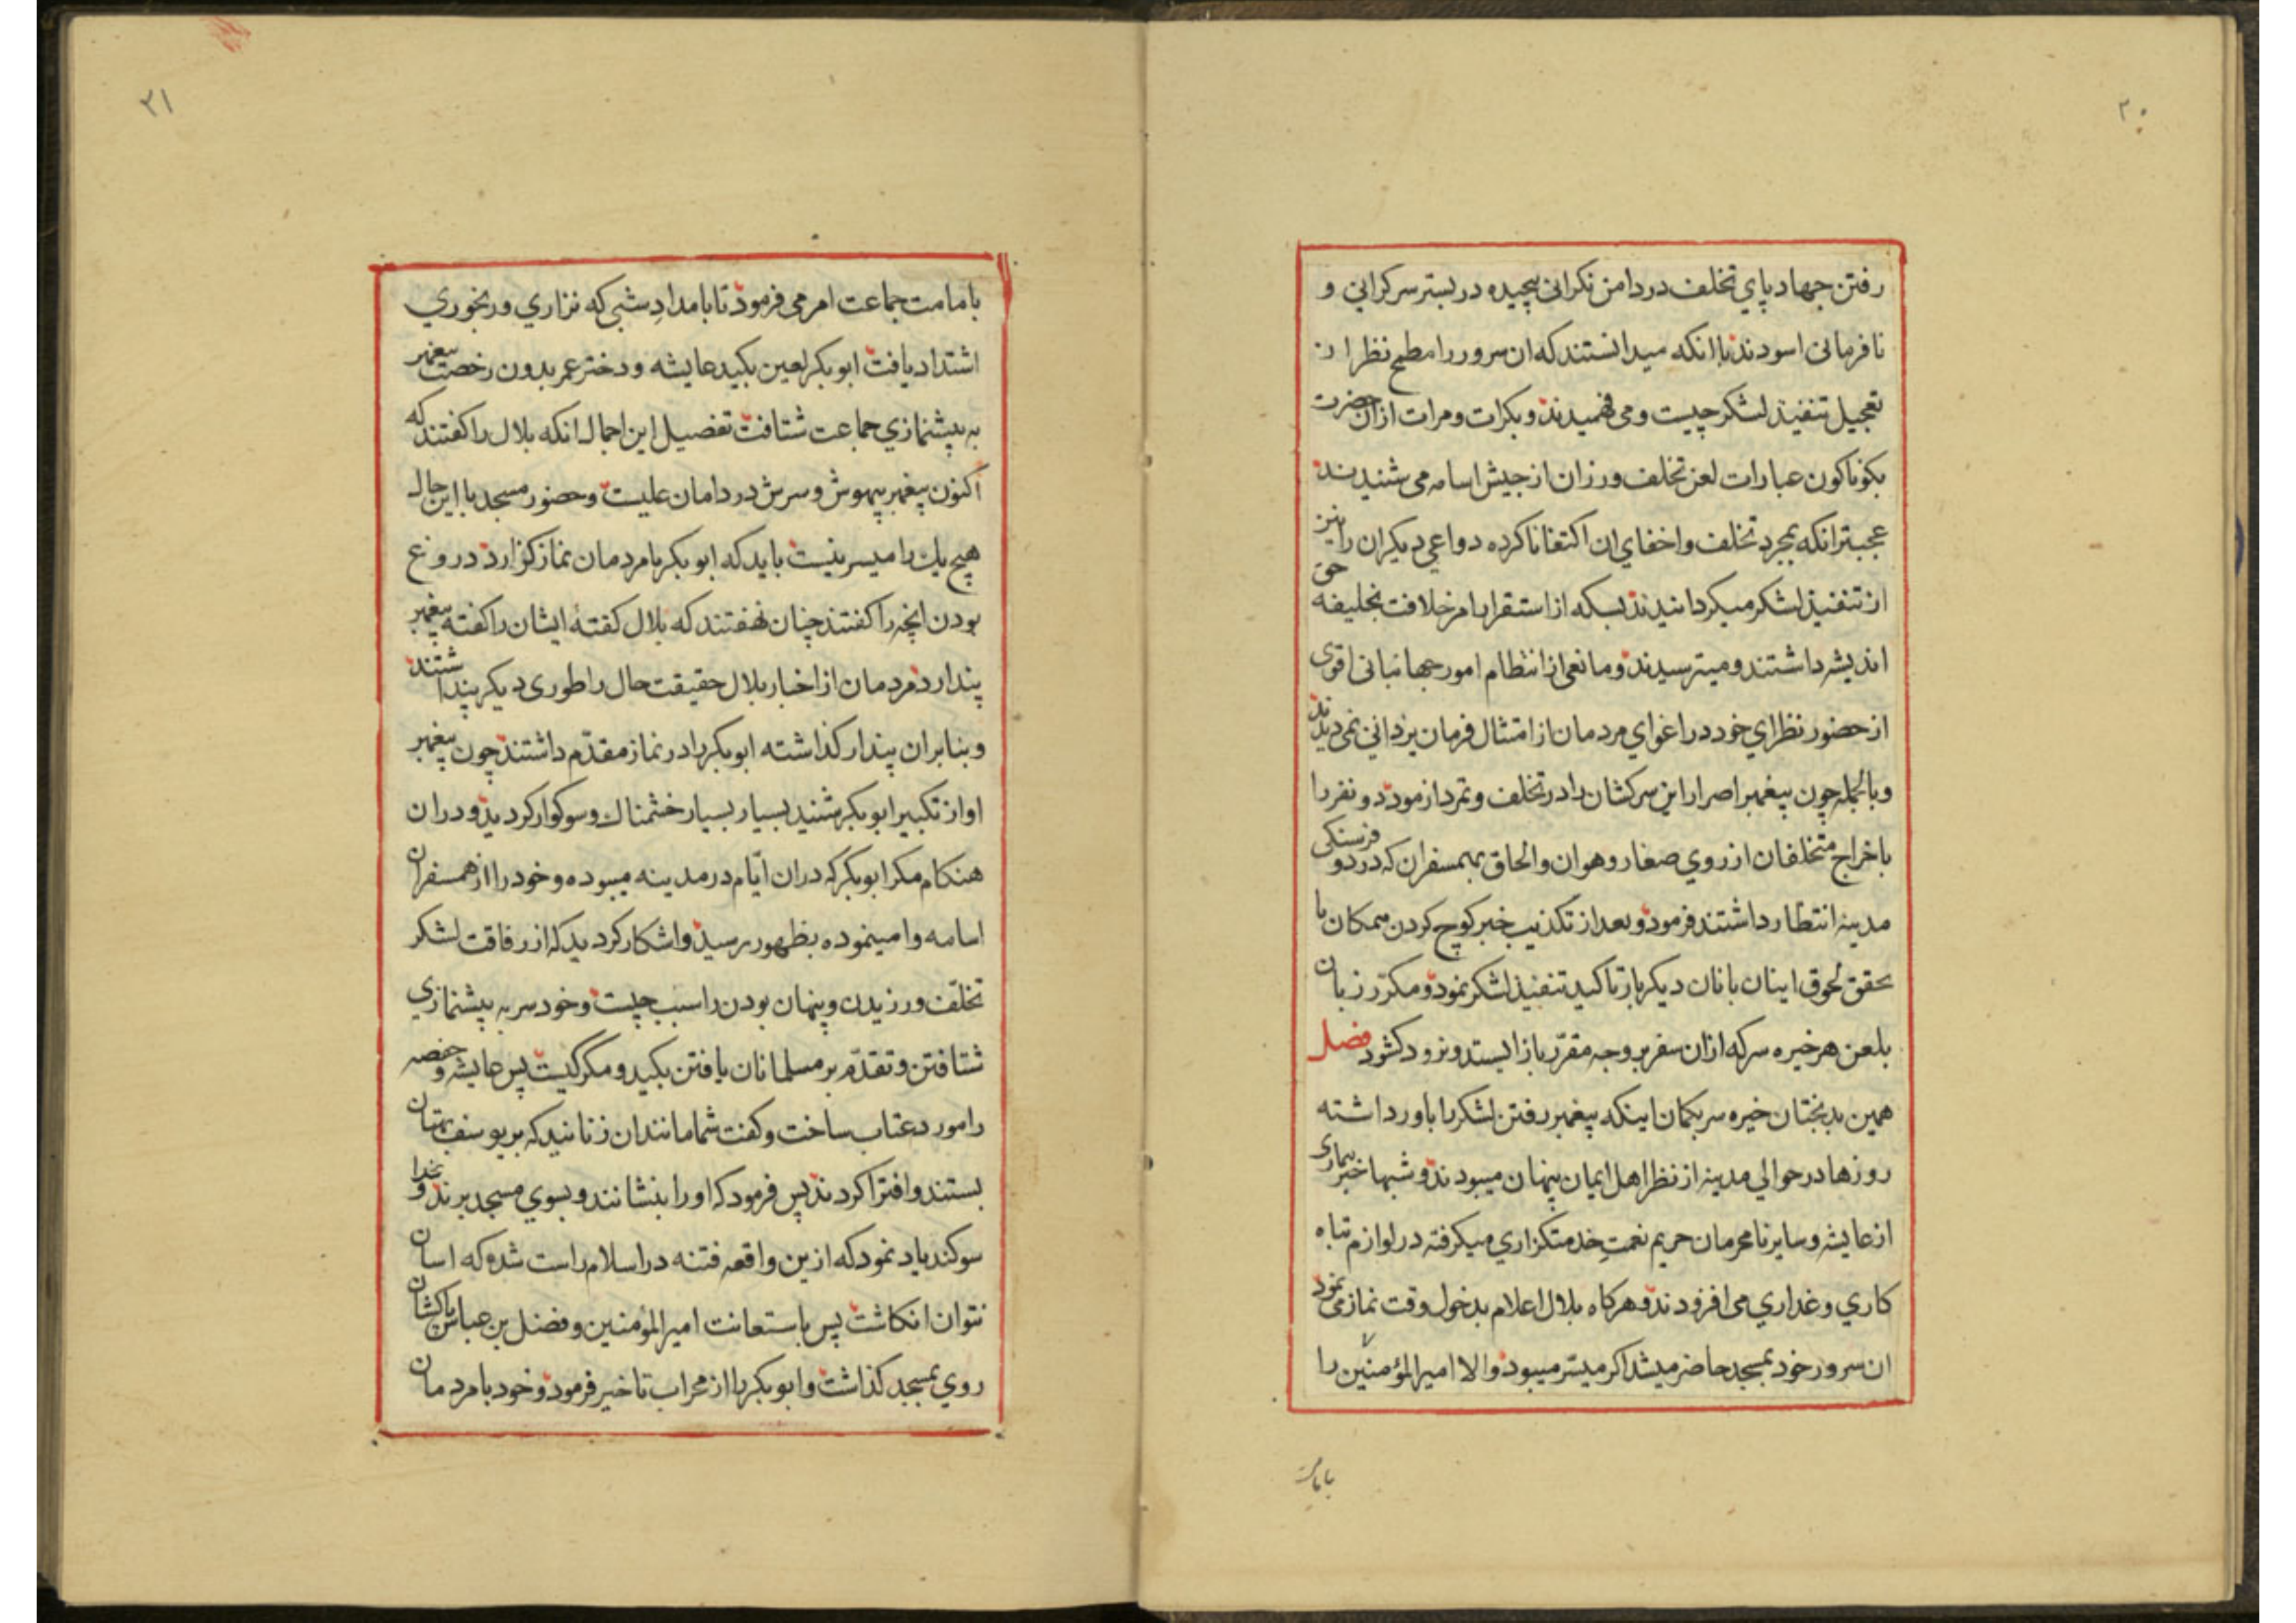 ۲۰
رفتن جهاد پاي تخلف در دامن نكرانی پیچیده در بستر سركرانی و
نافرمانی اسودند باانكه میدانستند كه ان سرور را مطمح نظر از
تعجیل تنفیذ لشكر چیست و می فهمیدند و بكرات و مرات از ان حضرت
بكوناكون عبارات لعن تخلف ورزان از جیش اسامه می شنیدند
عجبتر انكه بمجرد تخلف و اخفاي ان اكتفا ناكرده دواعی دیكران را نیز
از تنفیذ لشكر میكردانیدند بسكه از استقرار امر خلافت بخلیفه حق
اندیشه داشتند و میترسیدند و مانعی از انتظام امور جهانبانی اقوی
از حضور نظراي خود در اغواي مردمان از امتثال فرمان یزدانی نمی دیدند
و بالجمله چون پیغمبر اصرار این سركشان را در تخلف و تمرد ازمود دو نفر را
باخراج متخلفان از روي صغار و هوان و الحاق بهمسفران كه در دو فرسنكی
مدینه انتظار داشتند فرمود و بعد از تكذیب خبر كوچ كردن همكان با
تحقق لحوق اینان بانان دیكر باز تاكید تنفیذ لشكر نمود و مكرّر زبان
بلعن هر خیره سر كه از ان سفر بر وجه مقرّر باز ایستد و نرود كشود فصل
همین بدبختان خیره سر بكمان اینكه پیغمبر رفتن لشكر را باور داشته
روزها در حوالی مدینه از نظر اهل ایمان پنهان میبودند و شبها خبر بیماری
از عایشه و سایر نامحرمان حریم نعمتِ خدمتكزاري میكرفته در لوازم تباه
كاري و غداري می افزودند و هركاه بلال اعلام بدخول وقت نماز می نمود
ان سرور خود بمسجد حاضر میشد اكر میسّر میبود و الا امیرالمؤمنین را
بامامت
۲۱
بامامت جماعت امر می فرمود تا بامدادِ شبی كه نزاري و رنجوري
اشتداد یافت ابوبكر لعین بكید عایشه و دختر عمر بدون رخصت پیغمبر
به پیشنمازي جماعت شتافت تفصیل این اجمال انكه بلال را كفتند كه
اكنون پیغمبر بیهوش و سرش در دامان علیست و حضور مسجد با این حال
هیچ یك را میسر نیست باید كه ابوبكر با مردمان نماز كزارد دروغ
بودن انچه را كفتند چنان نهفتند كه بلال كفتهٔ ایشان را كفته پیغمبر
پندارد مردمان از اخبار بلال حقیقت حال را طوری دیكر پنداشتند
و بنابران پندار كذاشته ابوبكر را در نماز مقدّم داشتند چون پیغمبر
اواز تكبیر ابوبكر شنید بسیار بسیار خشمناك و سوكوار كردید و در ان
هنكام مكر ابوبكر كه در ان ایّام در مدینه میبوده و خود را از همسفران
اسامه وا مینموده بظهور رسید و اشكار كردید كه از رفاقت لشكر
تخلّف ورزیدن و پنهان بودن را سبب چیست و خود سر به پیشنمازي
شتافتن و تقدّم بر مسلمانان یافتن بكید و مكر كیست پس عایشه و حفصه
را مورد عتاب ساخت و كفت شما مانند ان زنانید كه بر یوسف بهتان
بستند و افترا كردند پس فرمود كه او را بنشانند و بسوي مسجد برند و بخدا
سوكند یاد نمود كه ازین واقعه فتنه در اسلام راست شده كه اسان
نتوان انكاشت پس باستعانت امیرالمؤمنین و فضل بن عباس پاكشان
روي بمسجد كذاشت و ابوبكر را از محراب تاخیر فرمود و خود با مردمان